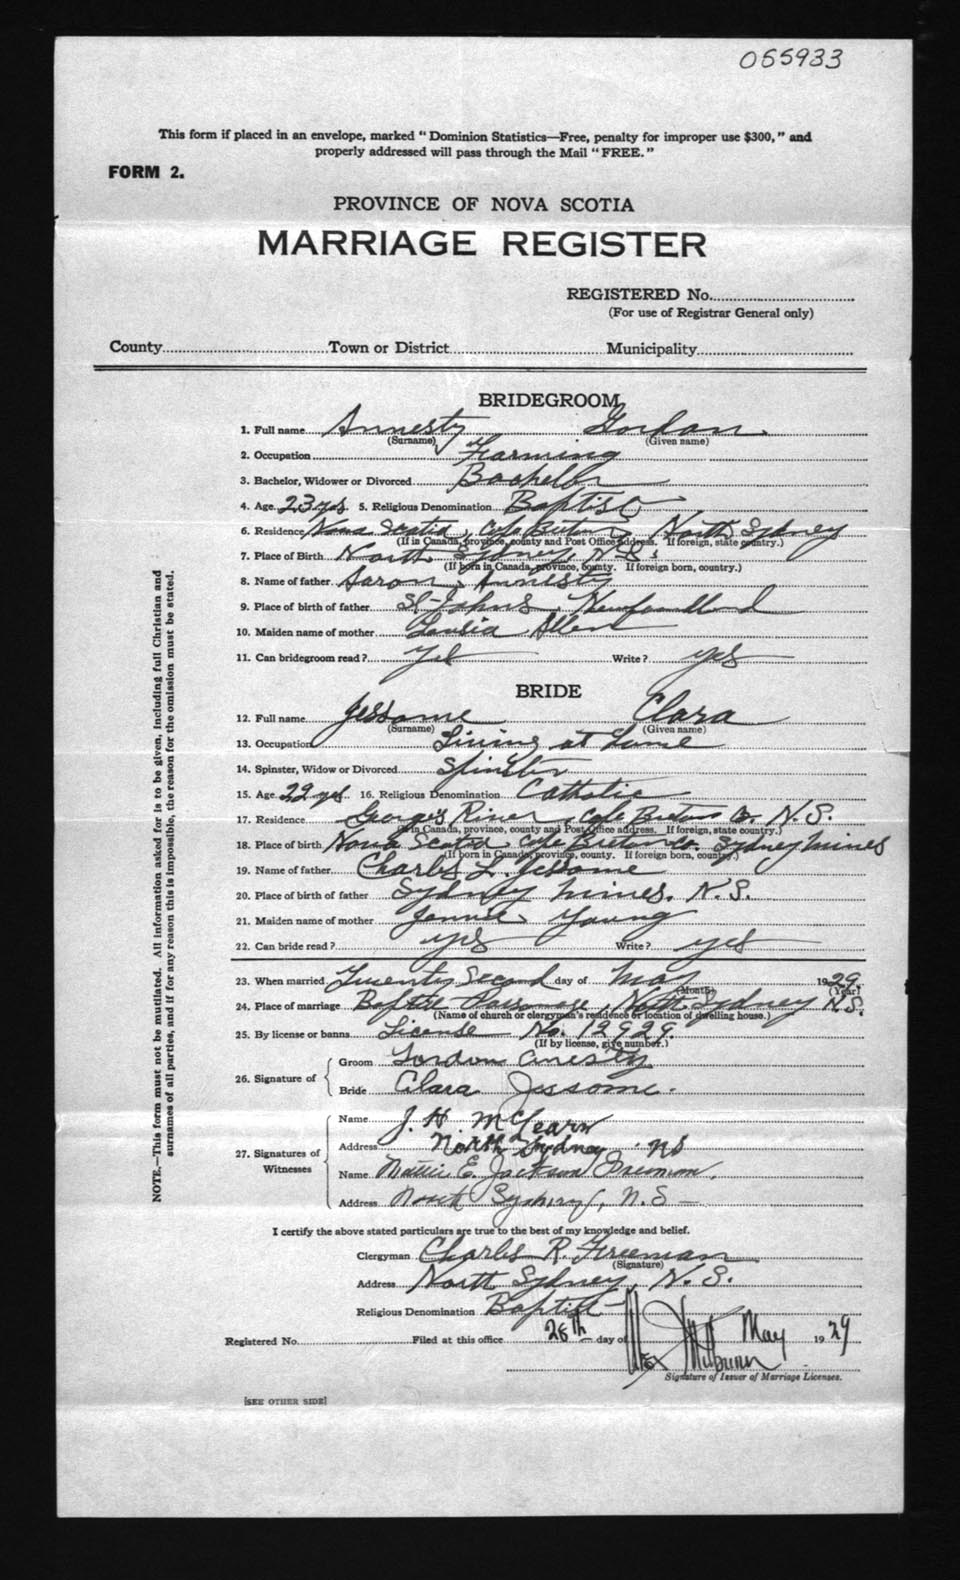 055933
This form if placed in an envelope, marked "Dominion Statistics—Free, penalty for improper use $300," and
properly addressed will pass through the Mail "FREE."
FORM 2.
PROVINCE OF NOVA SCOTIA
MARRIAGE REGISTER
REGISTERED No.
(For use of Registrar General only)
County Town or District Municipality
BRIDEGROOM
1. Full name Annesty Gordon.
(Surname) (Given name)
2. Occupation Farming
3. Bachelor, Widower or Divorced Bachellor
4. Age 23 yrs 5. Religious Denomination Baptist
6. Residence Nova Scotia, Cape Breton, North Sydney
(If in Canada, province, county and Post Office address. If foreign, state country.)
7. Place of Birth North Sydney, N.S.
(If born in Canada, province, county. If foreign born, country.)
8. Name of father Aaron Annesty
9. Place of birth of father St Johns, Newfoundland
10. Maiden name of mother Allen
11. Can bridegroom read? Yes Write? yes
BRIDE
12. Full name Jessome Clara
(Surname) (Given name)
13. Occupation Living at home
14. Spinster, Widow or Divorced Spinster
15. Age 22 yrs 16. Religious Denomination Catholic
17. Residence Georges River, Cape Breton Co. N.S.
(If in Canada, province, county and Post Office address. If foreign, state country.)
18. Place of birth Nova Scotia Cape Breton Co. Sydney Mines
(If born in Canada, province, county. If foreign born, country.)
19. Name of father Charles L. Jessome
20. Place of birth of father Sydney Mines, N.S.
21. Maiden name of mother Jennie Young
22. Can bride read? yes Write? yes
23. When married Twenty Second day of May 1929
(Month) (Year)
24. Place of marriage Baptist Parsonage, North Sydney N.S.
(Name of church or clergyman's residence or location of dwelling house.)
25. By license or banns License No. 12929.
(If by license, give number.)
26. Signature of Groom Gordon Anesty
Bride Clara Jessome.
27. Signatures of Witnesses Name J. H. McLearn
Address North Sydney NS
Name Mattie E. Jackson Freeman,
Address North Sydney, N.S
I certify the above stated particulars are true to the best of my knowledge and belief.
Clergyman Charles R. Freeman
(Signature)
Address North Sydney, N.S.
Religious Denomination Baptist
Registered No. Filed at this office 28th day of May 1929
Signature of Issuer of Marriage Licenses.
[SEE OTHER SIDE]
NOTE.—This form must not be mutilated. All information asked for is to be given, including full Christian and
surnames of all parties, and if for any reason this is impossible, the reason for the omission must be stated.